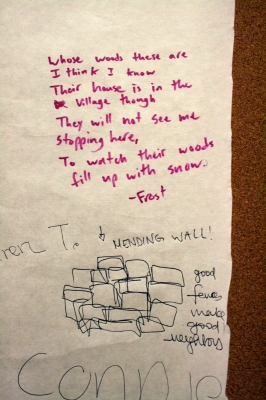 Whose woods these are
I think I know
Their house is in the
village though
They will not see me
stopping here,
To watch their woods
fill up with snow.
-Frost
ren T. & MENDING WALL!
good
fences
make
good
neighbors
Connie